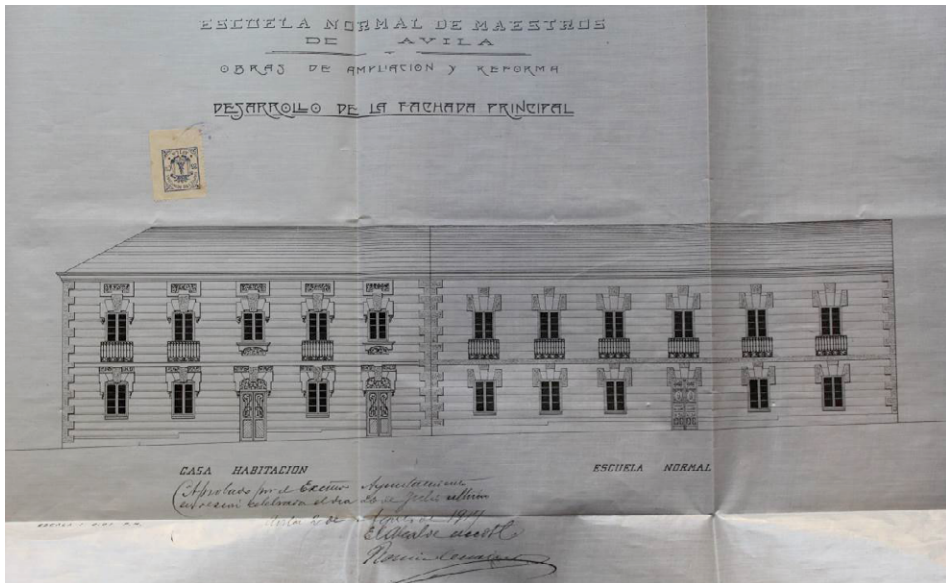 ESCUELA NORMAL DE MAESTROS
DE AVILA
OBRAS DE AMPLIACION Y REFORMA
DESARROLLO DE LA FACHADA PRINCIPAL
CASA HABITACION
ESCUELA NORMAL
Aprobado por el Excmo Ayuntamiento
en sesion celebrada el dia 20 de Julio ultimo
de 1911
El Alcalde